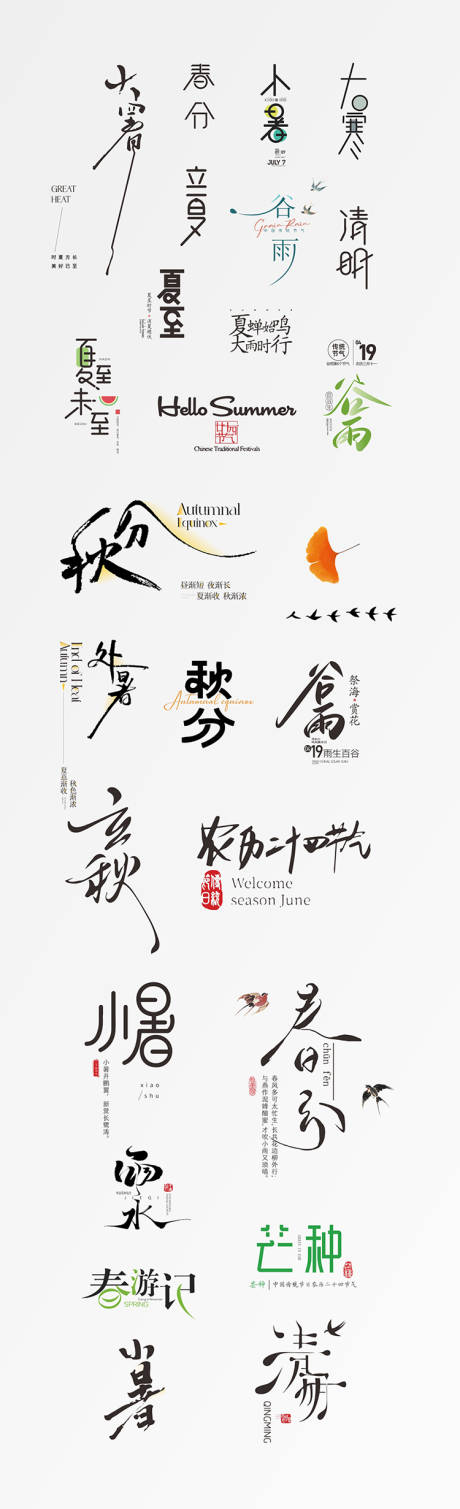 大暑
GREAT
HEAT
时夏方长
美好已至
春分
小暑
JULY 7
大寒
立夏
谷雨
Grain Rain
清明
夏至
夏蝉始鸣
大雨时行
夏至
未至
Hello Summer
Chinese Traditional Festivals
传统
节气
04
19
谷雨
秋分
Autumnal
Equinox
昼渐短 夜渐长
夏渐收 秋渐浓
处暑
End of Heat
Autumn
秋分
Autumnal equinox
谷雨
祭海·赏花
04
19雨生百谷
秋色渐浓
夏意渐收
立秋
农历二十四节气
Welcome
season June
小暑
xiao
/shu
春分
chūn fēn
春风多可太忙生,长共花边柳外行;
与燕作泥蜂酿蜜,才吹小雨又须晴。
雨水
春游记
SPRING
芒种
芒种
中国传统节日农历二十四节气
小暑
清明
QINGMING